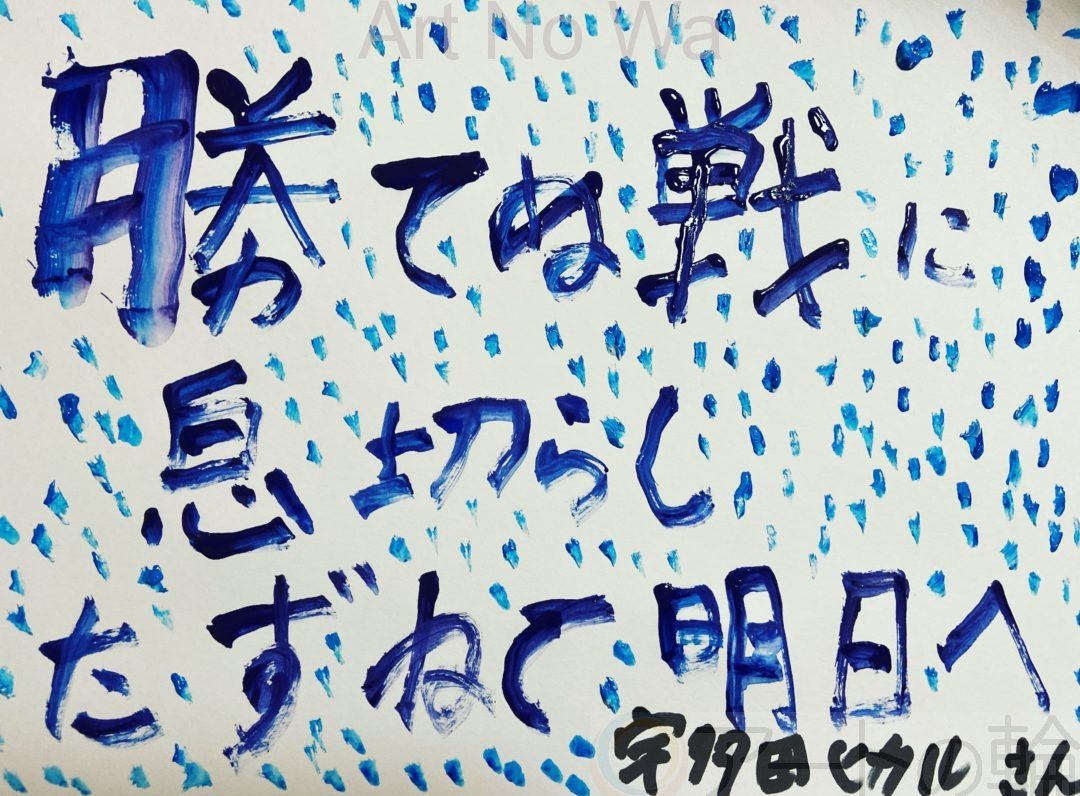 Art No Wa
勝てぬ戦に
息切らし
たずねて明日へ
宇多田ヒカルさん
アートの輪